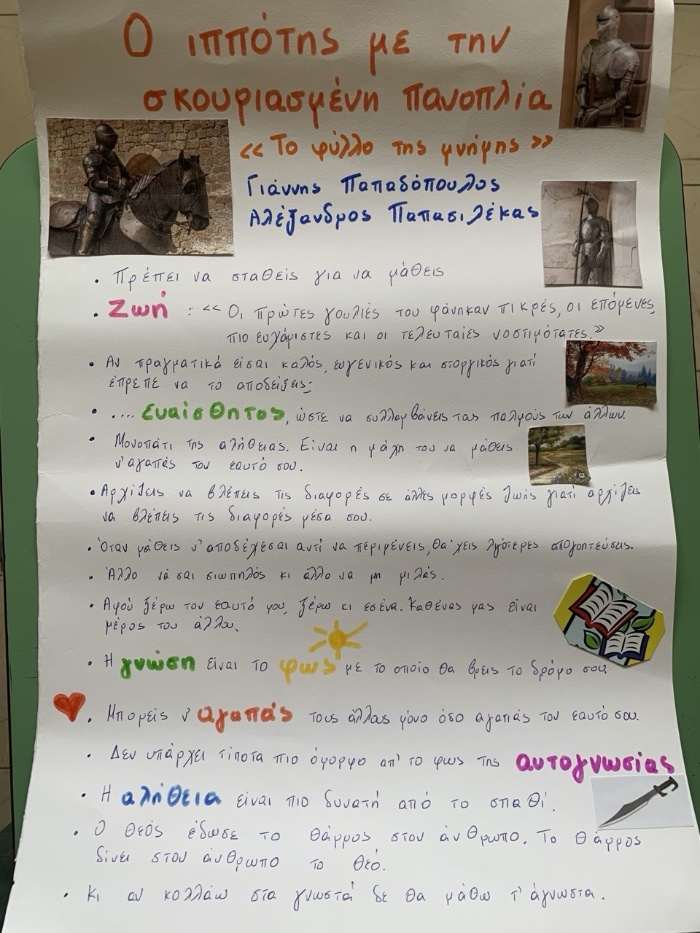 Ο ιππότης με την
σκουριασμένη πανοπλία
<< Το φύλλο της μνήμης >>
Γιάννης Παπαδόπουλος
Αλέξανδρος Παπασιλέκας
• Πρέπει να σταθείς για να μάθεις
• Ζωή : << Οι πρώτες γουλιές του φάνηκαν πικρές, οι επόμενες
πιο ευχάριστες και οι τελευταίες νοστιμότατες.>>
• Αν πραγματικά είσαι καλός, ευγενικός και στοργικός γιατί
έπρεπε να το αποδείξεις;
• .... Ευαίσθητος, ώστε να συλλαμβάνεις τους παλμούς των άλλων.
• Μονοπάτι της αλήθειας. Είναι η μάχη του να μάθεις
ν'αγαπάς τον εαυτό σου.
• Αρχίζεις να βλέπεις τις διαφορές σε άλλες μορφές ζωής γιατί αρχίζεις
να βλέπεις τις διαφορές μέσα σου.
• Όταν μάθεις ν'αποδέχεσαι αντί να περιμένεις, θα'χεις λιγότερες απογοητεύσεις.
• Άλλο νά σαι σιωπηλός κι άλλο να μη μιλάς.
• Αφού ξέρω τον εαυτό μου, ξέρω κι εσένα. Καθένας μας είναι
μέρος του άλλου.
• Η γνώση είναι το φως με το οποίο θα βρεις το δρόμο σου.
• Μπορείς ν'αγαπάς τους άλλους μόνο όσο αγαπάς τον εαυτό σου.
• Δεν υπάρχει τίποτα πιο όμορφο απ'το φως της αυτογνωσίας
• Η αλήθεια είναι πιο δυνατή από το σπαθί.
• Ο Θεός έδωσε το θάρρος στον άνθρωπο. Το θάρρος
δίνει στον άνθρωπο το Θεό.
• Κι αν κολλάω στα γνωστά δε θα μάθω τ'άγνωστα.